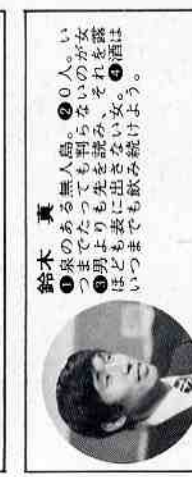 鈴木　真
❶泉のある無人島。❷０人。い
つまでたっても判らないのが女
❸男よりも先を読み、それを露
ほども表に出さない女。❹酒は
いつまでも飲み続けよう。